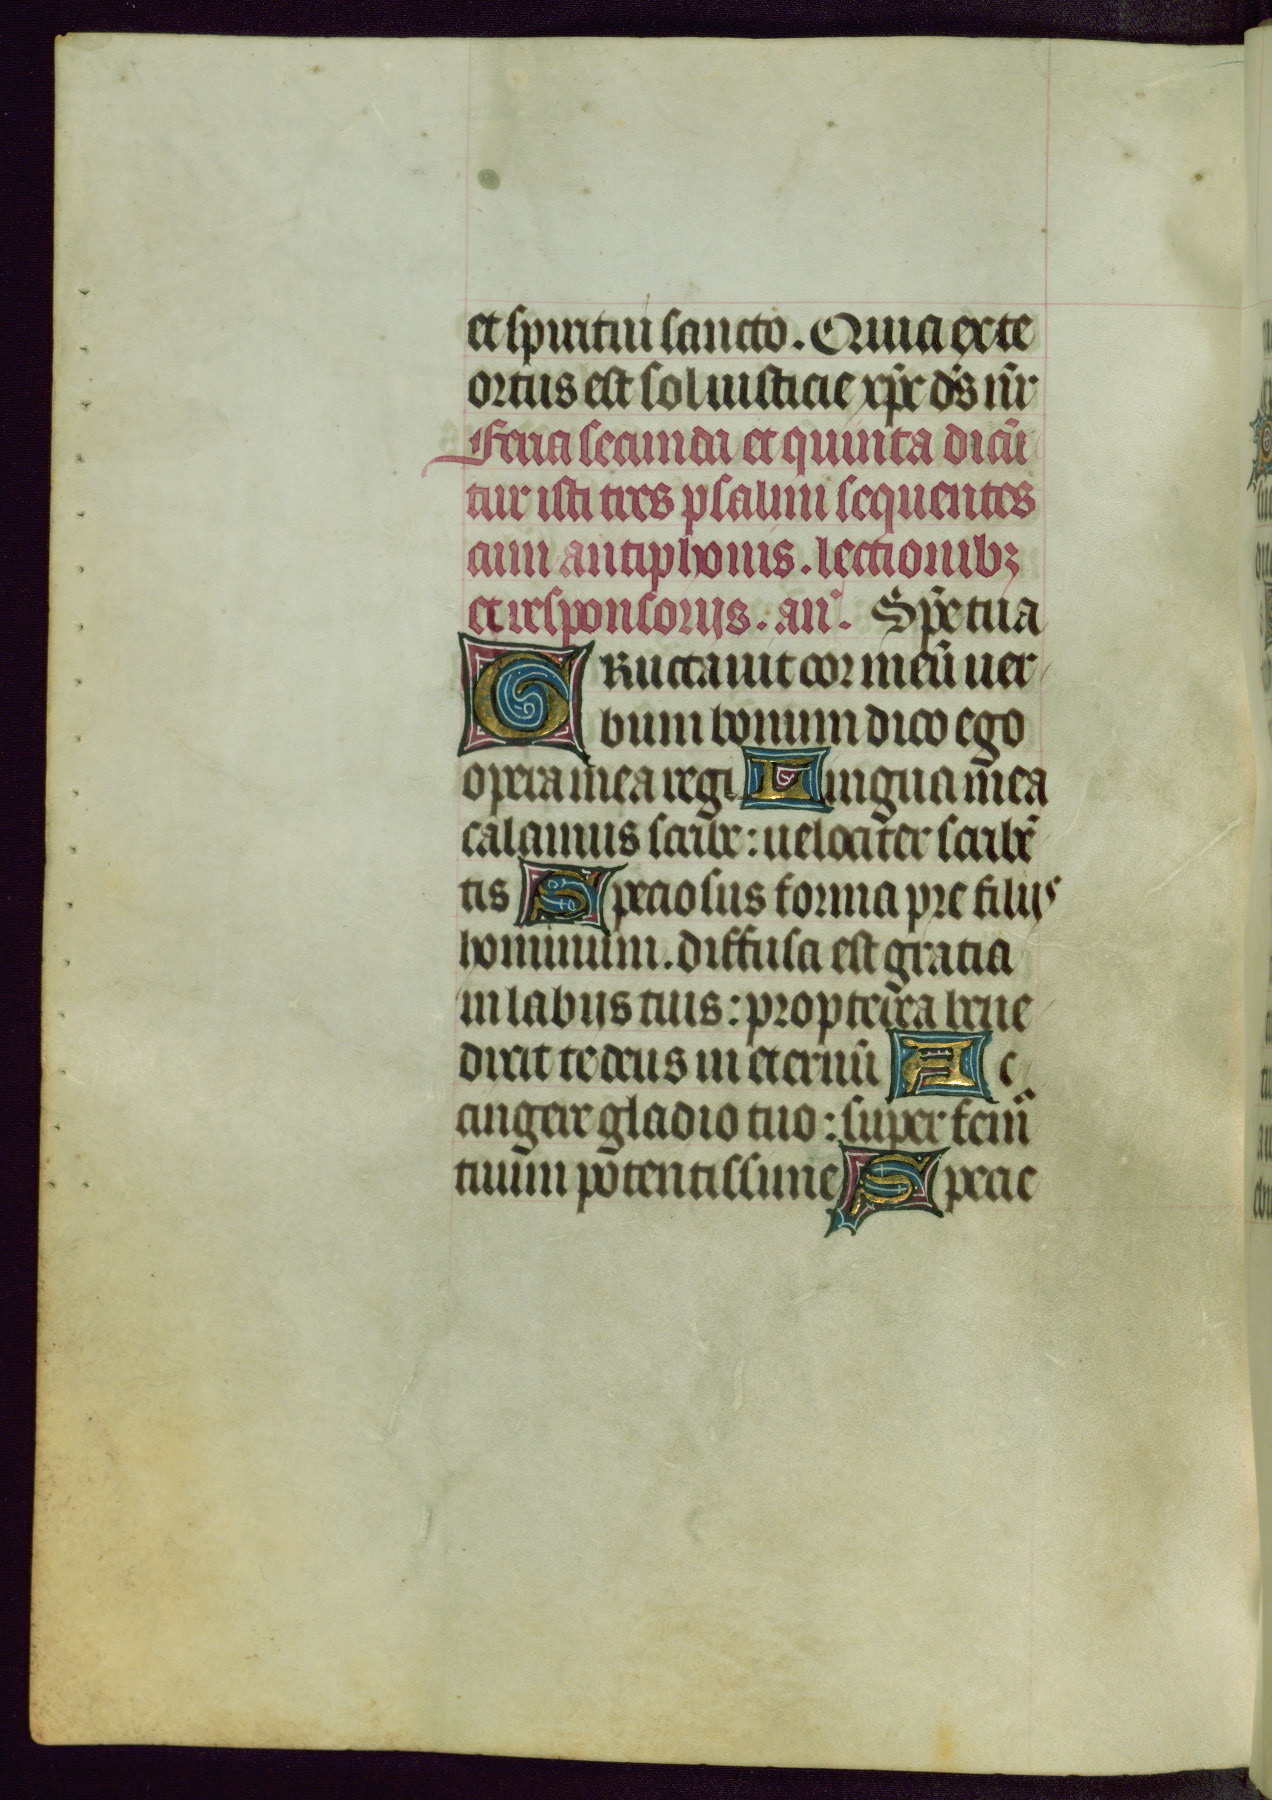 et spiritui sancto. Quia ex te
ortus est sol iusticie xp̄c dn̄s nr̄
Feria secunda et quinta dicū
tur isti tres psalmi sequentes
cum antiphonis. lectionibꝫ
et responsorijs. an̄. Spē tua
ERuctauit cor meū uer
bum bonum dico ego
opera mea regi Lingua mea
calamus scribe: uelociter scribē
tis Speciosus forma pre filijs
hominum. diffusa est gratia
in labijs tuis: propterea bene
dixit te deus in eternū Ac
cingere gladio tuo: super femur
tuum potentissime Specie